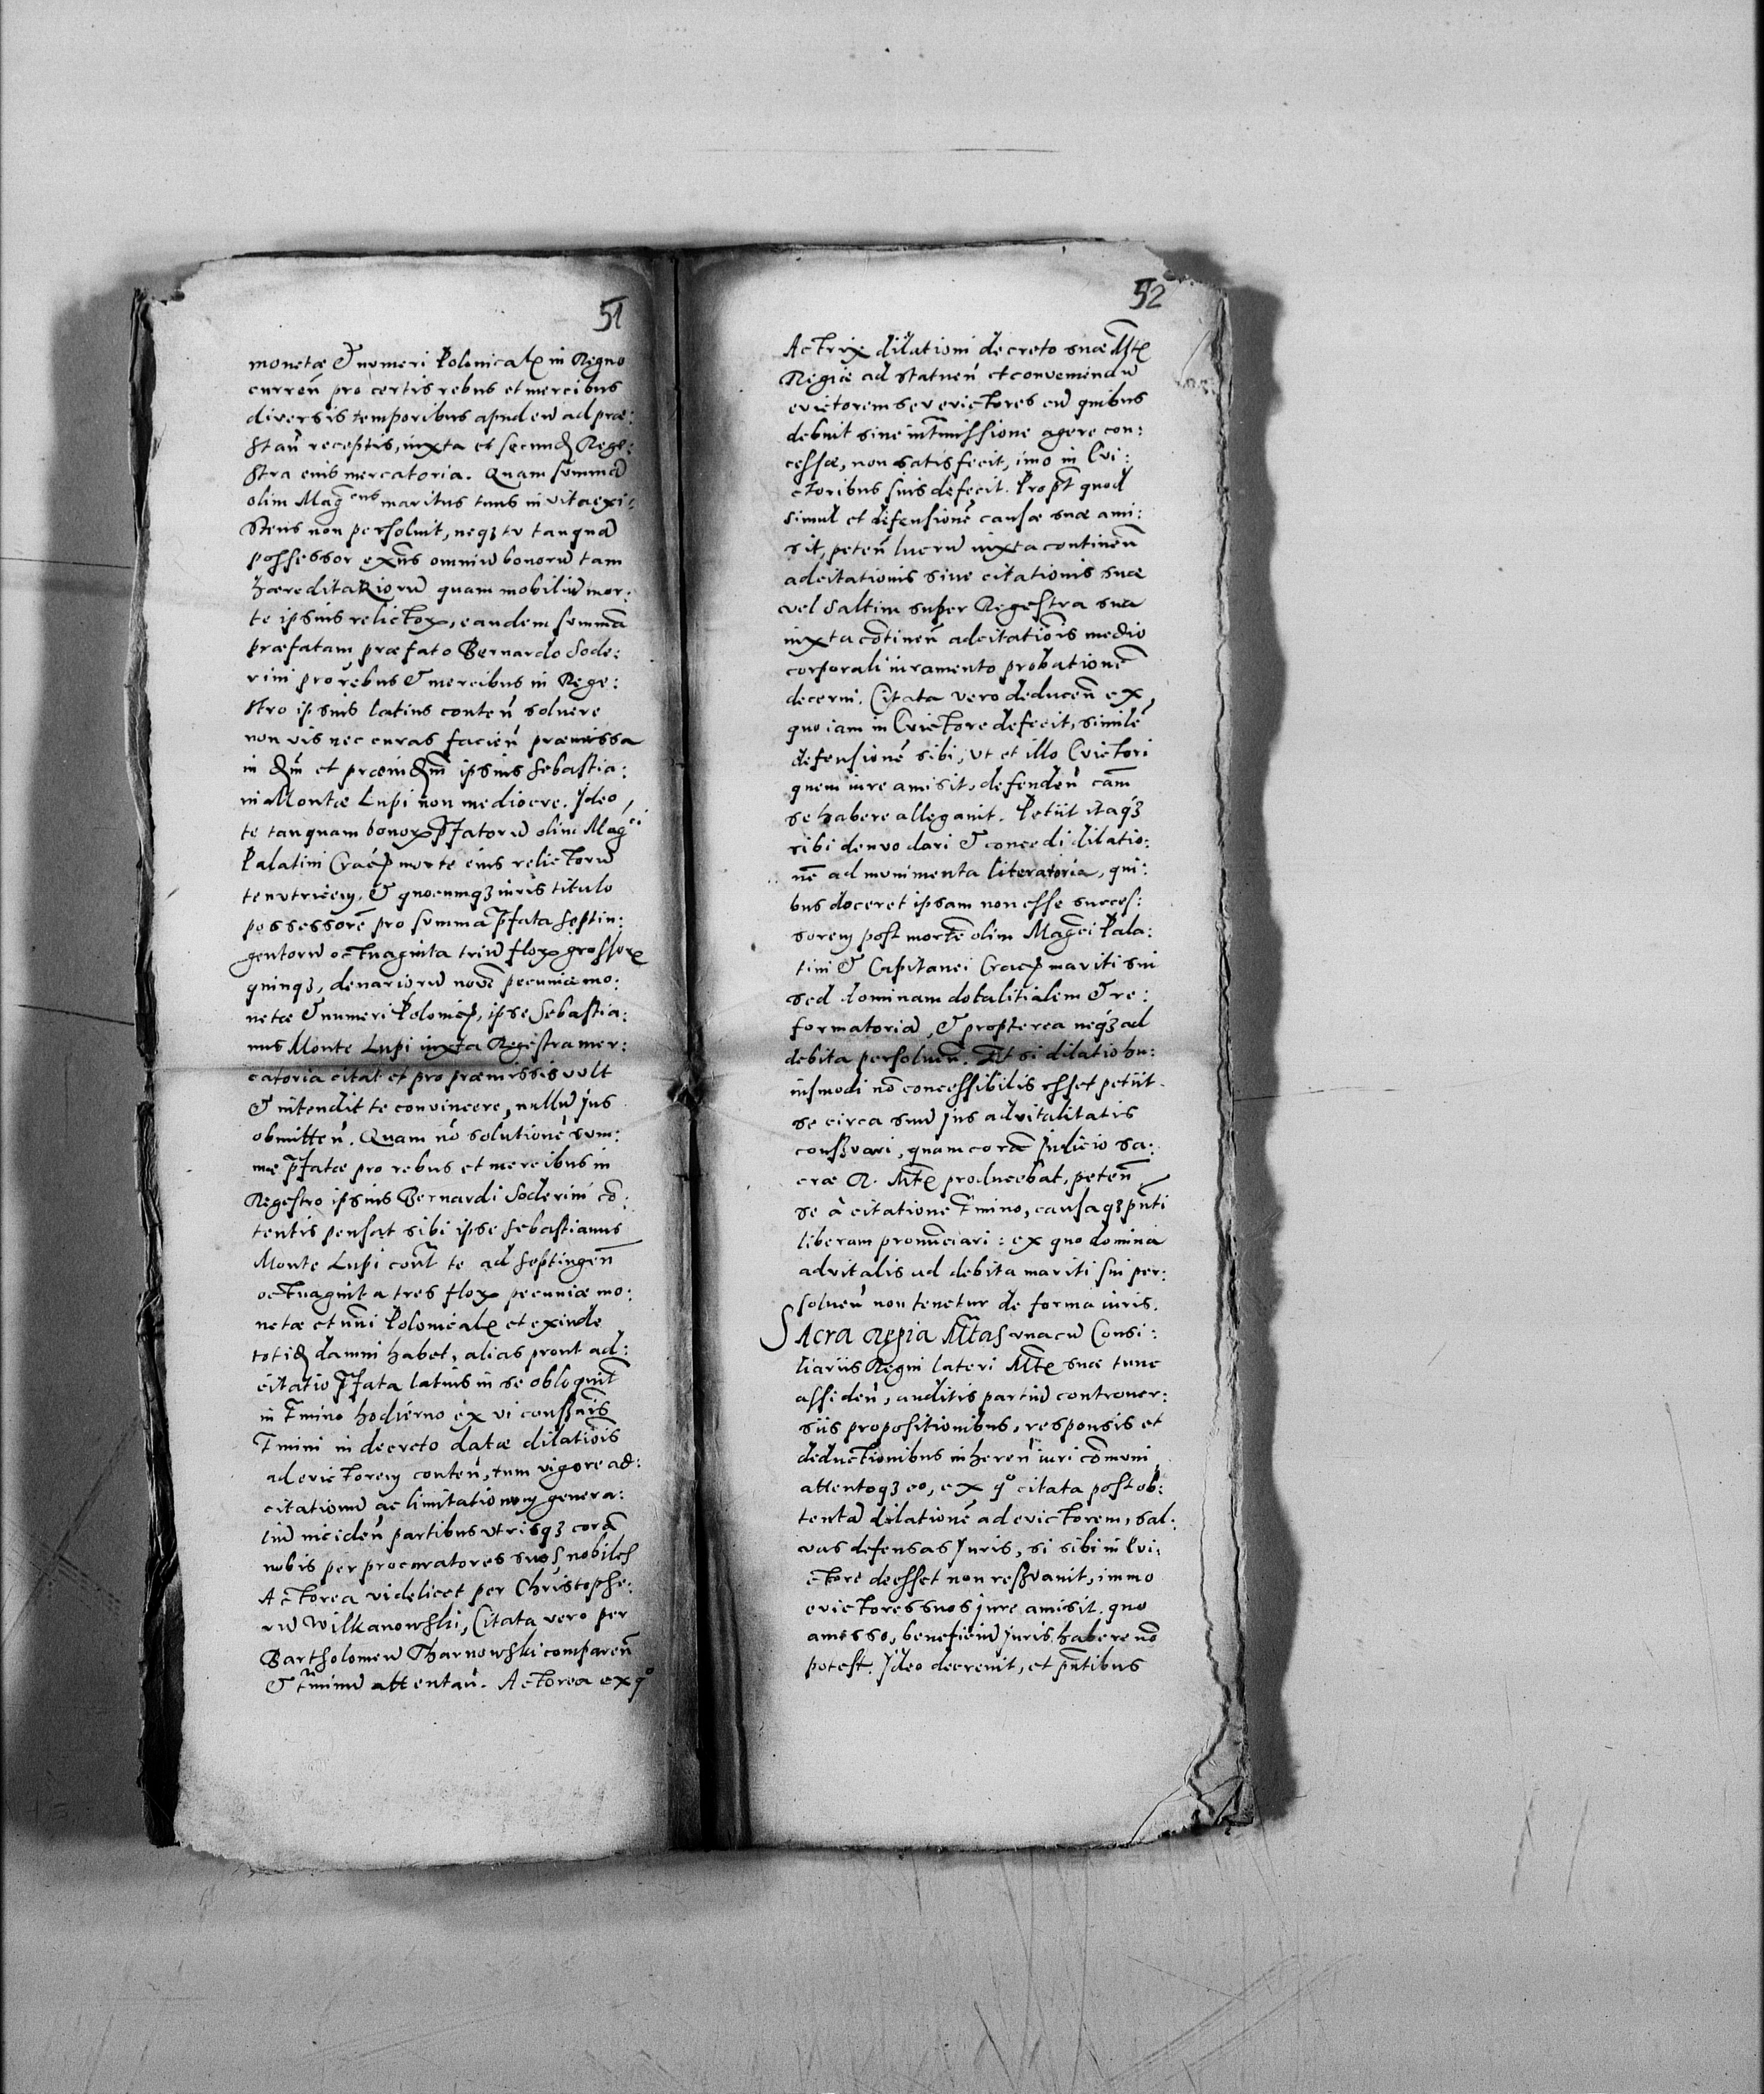 51
monetæ & numeri Polonicalꝭ in Regno
curreñ pro certis rebus et mercibus
diversis temporibus apud eũ ad præ:
stañ receptis, iuxta et secundꝫ Rege:
stra eius mercatoria. Quam summã
olim Magᶜᵘˢ maritus tuus in vita exi:
stens non persoluit, neqꝫ tu tanquã
possessor exñs omniũ bonorũ tam
hæreditariorũ quam mobiliũ mor:
te ipsius relictoꝝ, eandem summã
præfatam præfato Bernardo Sode:
rini pro rebus & mercibus in Rege:
stro ipsius latius conteñ soluere
non vis nec curas facieñ præmissa
in dm̃ et præiudm̃ ipsius Sebastia:
ni Montæ Lupi non mediocre. Ideo,
te tanquam bonoꝝ p̃fatorũ olim Magᶜⁱ
Palatini Cracꝭ morte eius relictorũ
tenutricem, & quocumqꝫ iuris titulo
possessorẽ pro summa p̃fata septin:
gentorũ octuaginta triũ floꝝ grossorꝭ
quinqꝫ, denariorũ novẽ pecuniæ mo:
netæ & numeri Polonicꝭ, ipse Sebastia:
nus Monte Lupi iuxta Regestra mer:
catoria citat et pro præmissis vult
& intendit te convincere, nullũ jus
obmitteñ. Quam nõ solutionẽ sum:
mæ p̃fatæ pro rebus et mercibus in
Regestro ipsius Bernardi Soderini cõ:
tentis pensat sibi ipse Sebastianus
Monte Lupi cont̃ te ad septingeñ
octuaginta tres floꝝ pecuniæ mo:
netæ et nũi Polonicalꝭ et exinde
totidꝫ damni habet, alias prout ad:
citatio p̃fata latius in se obloquit̃
in T̃mino hodierno ex vi consꝫuãis
T̃mini in decreto datæ dilatiõis
ad evictorem conteñ, tum vigore ad:
citationũ ac limitationum genera:
liũ incideñ partibus utrisqꝫ corã
nobis per procuratores suos nobiles
Actorea videlicet per Christophe:
rũ Wilkanowski, Citata vero per
Bartholomeũ Tharnowski compareñ
& T̃minũ attentañ. Actorea ex qº
52
Actrix dilationi decreto suæ Mt̃ꝭ
Regiæ ad statueñ et conveniendũ
evictorem seu evictores cũ quibus
debuit sine int̃missione agere con:
cessæ, non satisfecit, imo in Evi:
ctoribus suis defecit. Propt̃ quod
simul et defensionẽ causæ suæ ami:
sit, peteñ lucrũ iuxta contineñ
adcitationis siue citationis suæ
vel saltim super Regestra sua
iuxta cõtineñ adcitatiõis medio
corporali iuramento probationẽ
decerni. Citata vero deduceñ ex,
quo iam in Evictore defecit, similẽ
defensionẽ sibi, ut et illo Evictori
quem iure amisit, defendeñ cãm
se habere allegauit. Petiit itaqꝫ
sibi denuo dari & concedi dilatio:
nẽ ad munimenta literatoria, qui:
bus doceret ipsam non esse succes:
sorem post mortẽ olim Magc̃i Pala:
tini & Capitanei Cracꝭ mariti sui
sed dominam dotalitialem & re:
formatoriã, & propterea neqꝫ ad
debita persolueñ. Et si dilatio hu:
iusmodi nõ concessibilis esset petiit
se circa suũ jus advitalitatis
consꝫvari, quam corã Judicio sa:
cræ R. Mt̃ꝭ producebat, peteñ
se à citatione T̃mino, causaqꝫ pñti
liberam pronũciari: ex quo domina
advitalis ad debita mariti sui per:
solueñ non tenetur de forma iuris.
Sacra Regia Mt̃tas unacũ Consi:
liariis Regni lateri Mt̃ꝭ suæ tunc
assideñ, auditis partiũ controuer:
siis propositionibus, responsis et
deductionibus inhereñ iuri cõmuni,
attentoqꝫ eo, ex qº citata post ob:
tentã dilationẽ ad evictorem, sal:
vas defensas Juris, si sibi in Evi:
ctore deesset non resꝫvauit, immo
evictores suos jure amisit. quo
amisso, beneficiũ juris habere nõ
potest. Ideo decreuit, et pñtibus